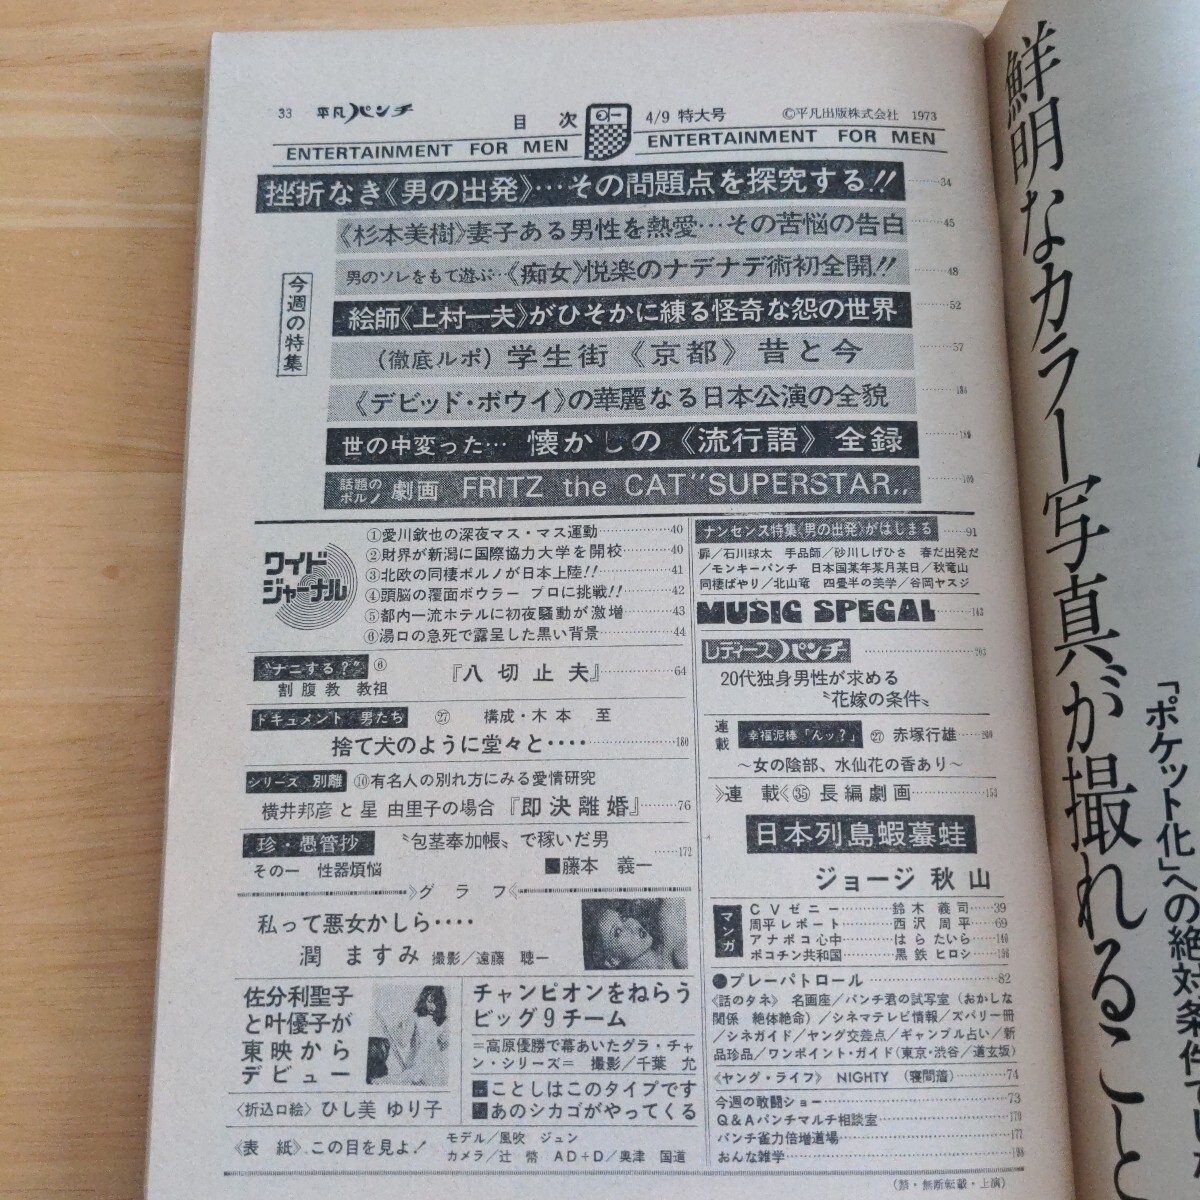 33 平凡パンチ
目次
4/9 特大号
©平凡出版株式会社 1973
ENTERTAINMENT FOR MEN
ENTERTAINMENT FOR MEN
今週の特集
挫折なき《男の出発》…その問題点を探究する!!………34
《杉本美樹》妻子ある男性を熱愛…その苦悩の告白………45
男のソレをもて遊ぶ…《痴女》悦楽のナデナデ術初全開!!………48
絵師《上村一夫》がひそかに練る怪奇な怨の世界………52
(徹底ルポ) 学生街《京都》昔と今………57
《デビッド・ボウイ》の華麗なる日本公演の全貌
世の中変った… 懐かしの《流行語》全録
話題のポルノ 劇画 FRITZ the CAT"SUPERSTAR,,
ワイドジャーナル
①愛川欽也の深夜マス・マス運動………40
②財界が新潟に国際協力大学を開校………40
③北欧の同棲ポルノが日本上陸!!………41
④頭脳の覆面ボウラー プロに挑戦!!………42
⑤都内一流ホテルに初夜騒動が激増………43
⑥湯口の急死で露呈した黒い背景………44
"ナニする?" ⑥
割腹教 教祖 『八切止夫』………64
ドキュメント 男たち ㉗ 構成・木本 至
捨て犬のように堂々と‥‥………180
シリーズ 別離 ⑩有名人の別れ方にみる愛情研究
横井邦彦と星 由里子の場合『即決離婚』………76
珍・愚管抄 〝包茎奉加帳〟で稼いだ男
その一 性器煩悩 ■藤本 義一………172
》グラフ《
私って悪女かしら‥‥
潤 ますみ 撮影/遠藤 聴一
佐分利聖子
と叶優子が
東映から
デビュー
チャンピオンをねらう
ビッグ9チーム
=高原優勝で幕あいたグラ・チャ
ン・シリーズ= 撮影/千葉 允
■ことしはこのタイプです
■あのシカゴがやってくる
〈折込口絵〉ひし美 ゆり子
《表 紙》この目を見よ!
モデル/風吹 ジュン
カメラ/辻 幣 AD+D/奥津 国道
ナンセンス特集《男の出発》がはじまる………91
扉/石川球太 手品師/砂川しげひさ 春だ出発だ
/モンキーパンチ 日本国某年某月某日/秋竜山
同棲ばやり/北山竜 四畳半の美学/谷岡ヤスジ
MUSIC SPECAL
レディースパンチ………203
20代独身男性が求める
〝花嫁の条件〟
連載 幸福泥棒「んッ?」 ㉗ 赤塚行雄………200
～女の陰部、水仙花の香あり～
》連 載《 ㉟ 長編劇画………153
日本列島蝦蟇蛙
ジョージ 秋山
マンガ
CVゼニー………鈴木 義司………39
周平レポート………西沢 周平………69
アナポコ心中………はら たいら
ポコチン共和国………黒鉄 ヒロシ
●プレーパトロール………82
《話のタネ》 名画座/パンチ君の試写室(おかしな
関係 絶体絶命)/シネマテレビ情報/ズバリ一冊
/シネガイド/ヤング交差点/ギャンブル占い/新
品珍品/ワンポイント・ガイド(東京・渋谷/道玄坂)
《ヤング・ライフ》 NIGHTY (寝間着)………74
今週の敢闘ショー………73
Q&Aパンチマルチ相談室………170
パンチ雀力倍増道場………177
おんな雑学………198
(禁・無断転載・上演)
鮮明なカラー写真が撮れること
「ポケット化」への絶対条件で